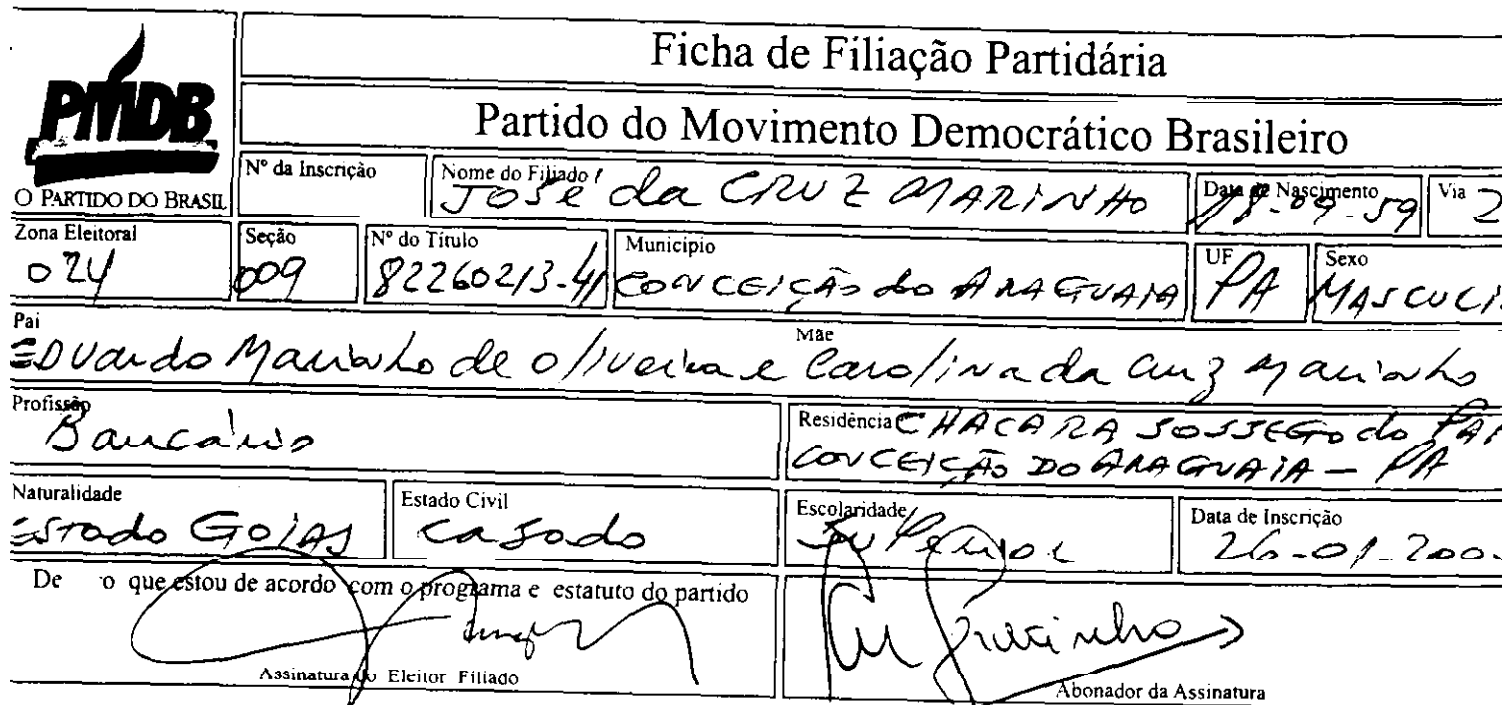 Ficha de Filiação Partidária
PMDB
Partido do Movimento Democrático Brasileiro
O PARTIDO DO BRASIL
Nº da Inscrição
Nome do Filiado
José da CRUZ MARINHO
Data de Nascimento
18-09-59
Via
2
Zona Eleitoral
024
Seção
009
Nº do Título
82260213-41
Município
CONCEIÇÃO do ARAGUAIA
UF
PA
Sexo
MASCULI
Pai
Mãe
EDVardo Marinho de oliveira e Carolina da Cruz Marinho
Profissão
Bancário
Residência
CHACARA SOSSEGO do
CONCEIÇÃO DO ARAGUAIA - PA
Naturalidade
Estado GOIAS
Estado Civil
casado
Escolaridade
Superior
Data de Inscrição
26-01-200
De o que estou de acordo com o programa e estatuto do partido
Assinatura do Eleitor Filiado
Abonador da Assinatura